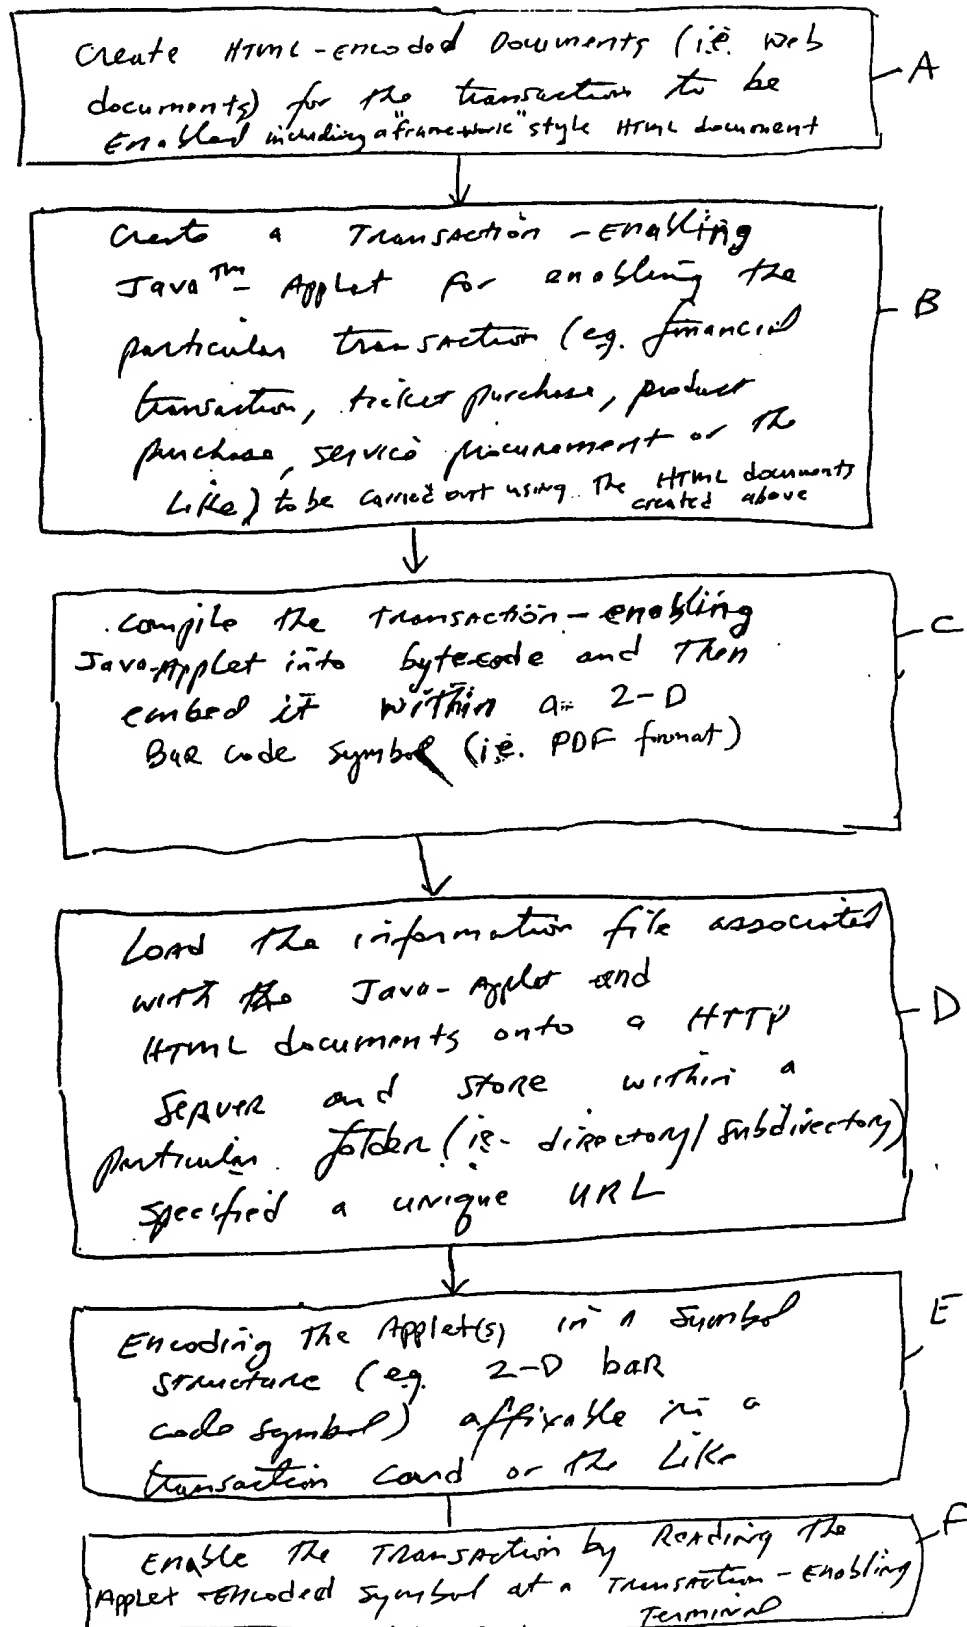 Create HTML-encoded Documents (i.e. Web
documents) for the transaction to be
Enabled including a "frame-work" style HTML document
A
Create a Transaction-Enabling
Java™-Applet for enabling the
particular transaction (e.g. financial
transaction, ticket purchase, product
purchase, service procurement or the
Like) to be carried out using the HTML documents
created above
B
Compile the transaction-enabling
Java-Applet into bytecode and Then
embed it within a 2-D
Bar code symbol (i.e. PDF format)
C
Load the information file associated
with the Java-Applet and
HTML documents onto a HTTP
Server and store within a
particular folder (ie- directory/subdirectory)
specified a unique URL
D
Encoding The Applet(s) in a symbol
structure (eg. 2-D bar
code symbol) affixable in a
transaction card or the Like
E
Enable The Transaction by Reading The
Applet-Encoded Symbol at a Transaction-Enabling
Terminal
F